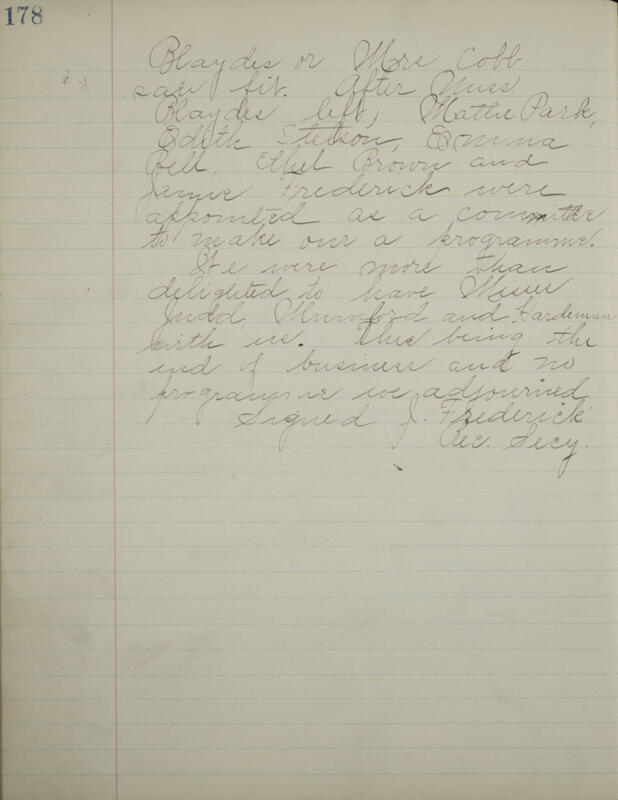 178
Blaydes or Mrs Cobb
saw fit. After Miss
Blaydes left, Mattie Park,
Edith Stetson, Emma
Bell, Ethel Brown and
Jamie Frederick were
appointed as a committee
to make our a programme.
We were more than
delighted to have Misses
Judd, Mumford and Hardeman
with us. This being the
end of business and no
programme we adjourned
Signed J. Frederick
Rec. Secy.